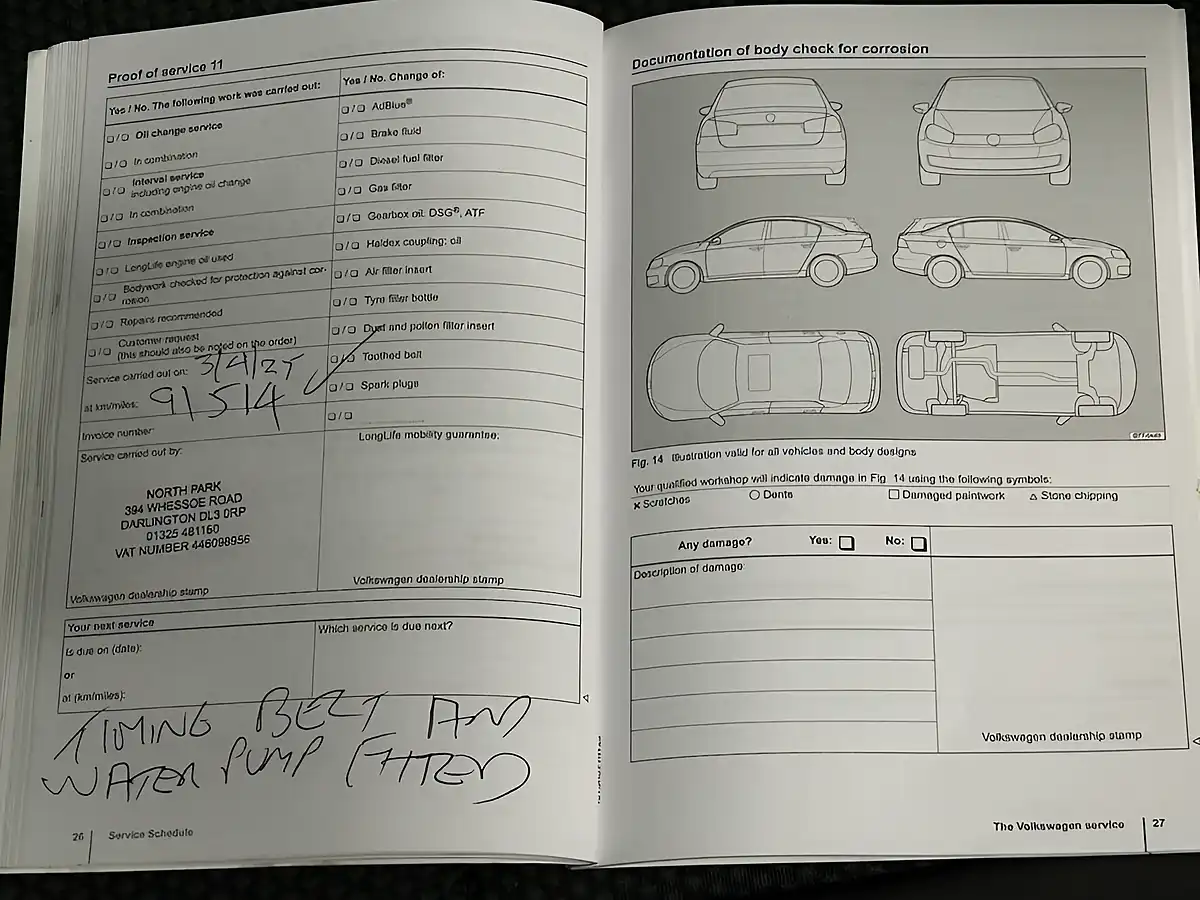 Proof of service 11
Yes / No. The following work was carried out:
❏ / ❏ Oil change service
❏ / ❏ In combination
❏ / ❏ Interval service
including engine oil change
❏ / ❏ In combination
❏ / ❏ Inspection service
❏ / ❏ LongLife engine oil used
❏ / ❏ Bodywork checked for protection against cor-
rosion
❏ / ❏ Repairs recommended
❏ / ❏ Customer request
(this should also be noted on the order)
Service carried out on: 3/4/25
at km/miles: 91514
Invoice number:
Service carried out by:
NORTH PARK
394 WHESSOE ROAD
DARLINGTON DL3 0RP
01325 481160
VAT NUMBER 446098956
Volkswagen dealership stamp
Yes / No. Change of:
❏ / ❏ AdBlue®
❏ / ❏ Brake fluid
❏ / ❏ Diesel fuel filter
❏ / ❏ Gas filter
❏ / ❏ Gearbox oil: DSG®, ATF
❏ / ❏ Haldex coupling: oil
❏ / ❏ Air filter insert
❏ / ❏ Tyre filler bottle
❏ / ❏ Dust and pollen filter insert
❏ / ❏ Toothed belt
❏ / ❏ Spark plugs
❏ / ❏
LongLife mobility guarantee:
Volkswagen dealership stamp
Your next service
Is due on (date):
or
at (km/miles):
Which service is due next?
TIMING BELT AND
WATER PUMP FITTED
26 Service Schedule
Documentation of body check for corrosion
Fig. 14 Illustration valid for all vehicles and body designs
Your qualified workshop will indicate damage in Fig. 14 using the following symbols:
× Scratches ○ Dents □ Damaged paintwork △ Stone chipping
Any damage? Yes: ❏ No: ❏
Description of damage:
Volkswagen dealership stamp
The Volkswagen service 27